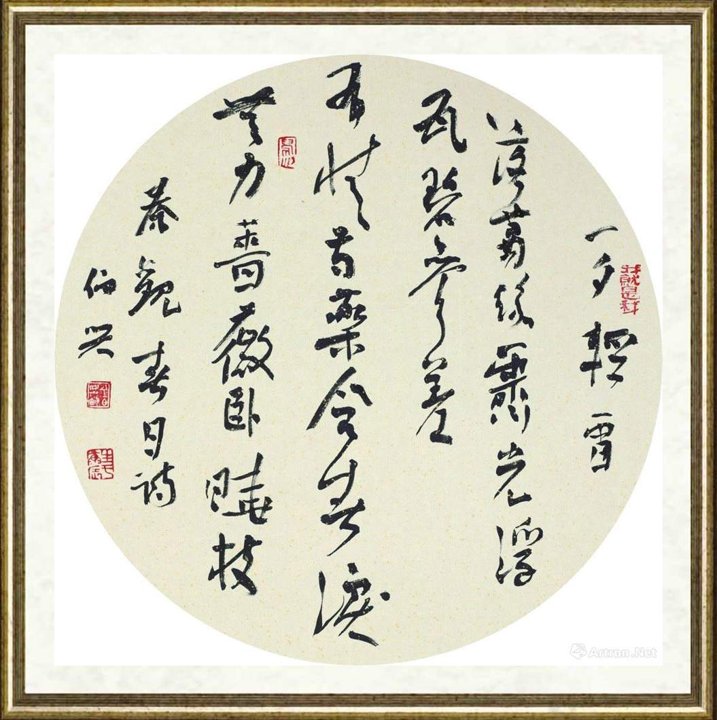 一夕輕雷
落萬絲霽光浮
瓦碧參差
有情芍藥含春淚
無力薔薇臥曉枝
秦觀春日詩
伯兴
Artron.Net